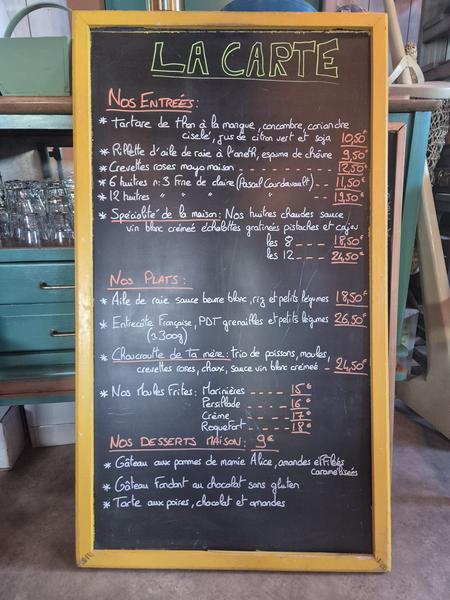 LA CARTE
Nos Entrées:
* Tartare de thon à la mangue, concombre, coriandre
ciselé, jus de citron vert et soja 10,50€
* Rillette d'aile de raie à l'aneth, espuma de chèvre 9,50€
* Crevettes roses mayo maison - - - - - - - - 12,50€
* 6 huîtres n:3 Fine de claire (Pascal Courdavault) - - 11,50€
* 12 huîtres " " " " - - 19,50€
* Spécialité de la maison: Nos huîtres chaudes sauce
vin blanc crémée échalottes gratinées pistaches et cajou
les 8 - - - 18,50€
les 12 - - - 24,50€
Nos Plats:
* Aile de raie sauce beurre blanc, riz et petits légumes 18,50€
* Entrecôte Française, PDT grenailles et petits légumes 26,50€
(≃300g)
* Choucroute de Ta mère: trio de poissons, moules,
crevettes roses, choux, sauce vin blanc crémée - 24,50€
* Nos Moules Frites: Marinières - - - - 15€
Persillade - - - - 16€
Crème - - - - 17€
Roquefort - - - - 18€
Nos Desserts Maison: 9€
* Gâteau aux pommes de mamie Alice, amandes effilées
caramélisées
* Gâteau Fondant au chocolat sans gluten
* Tarte aux poires, chocolat et amandes